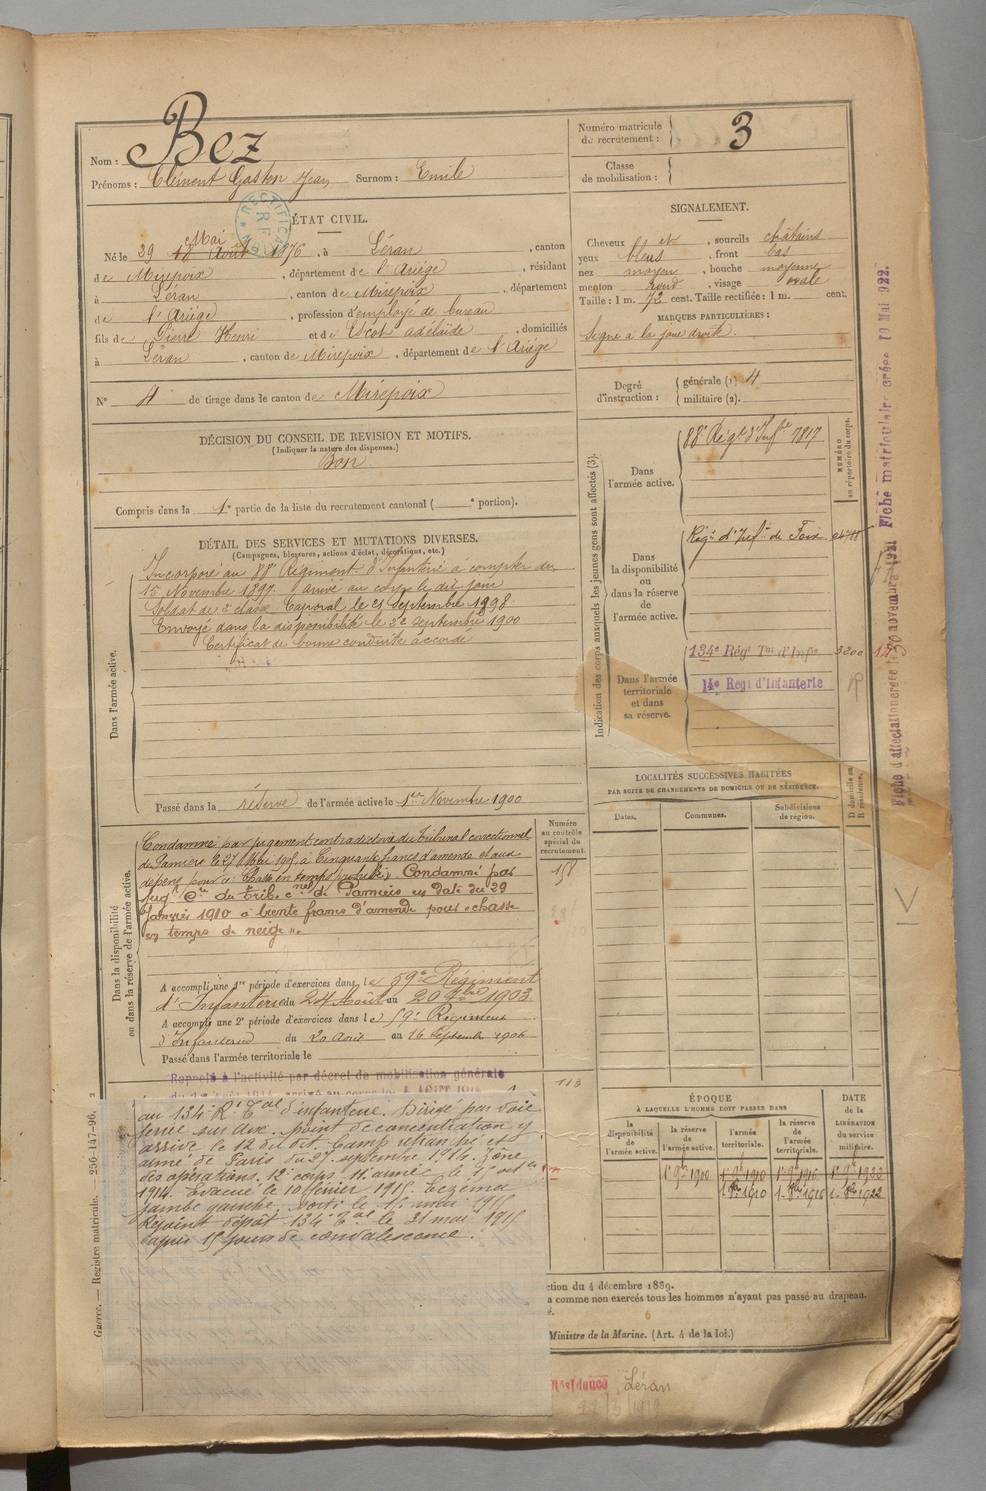 Nom : Bez
Prénoms : Clément Gaston Jean Surnom : Emile
Numéro matricule du recrutement : 3
Classe de mobilisation :
ÉTAT CIVIL.
Mai
Né le 29 18 Août 1876, à Léran, canton
de Mirepoix, département de l'Ariége, résidant
à Léran, canton de Mirepoix, département
de l'Ariége, profession d'employé de bureau
fils de Pierre Henri et de Escot adélaïde, domiciliés
à Léran, canton de Mirepoix, département de l'Ariége
N° 4 de tirage dans le canton de Mirepoix
SIGNALEMENT.
Cheveux et, sourcils châtains
yeux bleus, front bas
nez moyen, bouche moyenne
menton rond, visage ovale
Taille : 1 m. 72 cent. Taille rectifiée : 1 m. cent.
MARQUES PARTICULIÈRES :
Signe à la joue droite.
Degré d'instruction : générale (1) 4
militaire (2).
DÉCISION DU CONSEIL DE REVISION ET MOTIFS.
(Indiquer la nature des dispenses.)
Bon
Compris dans la 1e partie de la liste du recrutement cantonal ( e portion).
DÉTAIL DES SERVICES ET MUTATIONS DIVERSES.
(Campagnes, blessures, actions d'éclat, décorations, etc.)
Dans l'armée active.
Incorporé au 88e Régiment d'Infanterie à compter du
15 Novembre 1897. arrivé au corps le dit jour
Soldat de 2e classe Caporal le 21 Septembre 1898
Envoyé dans la disponibilité le 22 Septembre 1900
Certificat de bonne conduite accordé
Passé dans la réserve de l'armée active le 1er Novembre 1900
Indication des corps auxquels les jeunes gens sont affectés (3).
NUMÉRO au répertoire du corps.
Dans l'armée active.
88e Régt d'Infie 7817
Dans la disponibilité ou dans la réserve de l'armée active.
Régt d'Infie de Foix
Dans l'armée territoriale et dans sa réserve.
134e Régt Tal d'Infie 3200
14e Régt d'Infanterie
Fiche d'affectation créée le 30 novembre 1921 Fiche matriculaire créée 10 Mai 1922.
LOCALITÉS SUCCESSIVES HABITÉES
PAR SUITE DE CHANGEMENTS DE DOMICILE OU DE RÉSIDENCE.
Dates. Communes. Subdivisions de région. D domicile ou R résidence.
Dans la disponibilité ou dans la réserve de l'armée active.
Numéro au contrôle spécial du recrutement.
158
Condamné par jugement contradictoire du tribunal correctionnel
de Pamiers le 27 Mai 1905 à Cinquante francs d'amende et aux
dépens pour « Chasse en temps prohibé » Condamné par
jugt Cre du trib. cnel de Pamiers en date du 29
Janvier 1910 à trente francs d'amende pour « chasse
en temps de neige ».
A accompli une 1re période d'exercices dans le 59e Régiment
d'Infanterie du 24 Août au 20 7bre 1903
A accompli une 2e période d'exercices dans le 59e Régiment
d'Infanterie du 20 Août au 16 Septembre 1906
Passé dans l'armée territoriale le
Rappelé à l'activité par décret de mobilisation générale
113
au 134e Rt Tal d'infanterie. Dirigé par voie
ferrée sur Aux. point de concentration y
arrivé le 12 du dit. Camp retranché et
armé de Paris du 27 septembre 1914. Zône
des opérations. 12e corps 11e armée
1914. Evacué le 10 février 1915. Eczéma
jambe gauche. Sorti le 15 mai 1915
Rejoint dépôt 134e Tal le 31 mai 1915
après 15 jours de convalescence.
ÉPOQUE
À LAQUELLE L'HOMME DOIT PASSER DANS
la disponibilité de l'armée active. la réserve de l'armée active. l'armée territoriale. la réserve de l'armée territoriale.
DATE de la LIBÉRATION du service militaire.
1er 9bre 1900 1er 9bre 1910 1er 9bre 1916 1er 9bre 1922
1er 8bre 1910 1er 8bre 1916 1er 8bre 1922
ction du 4 décembre 1889.
a comme non exercés tous les hommes n'ayant pas passé au drapeau.
Ministre de la Marine. (Art. 4 de la loi.)
Résidence Léran
22/3/1919
Guerre. — Registre matricule. — 256-147-96.